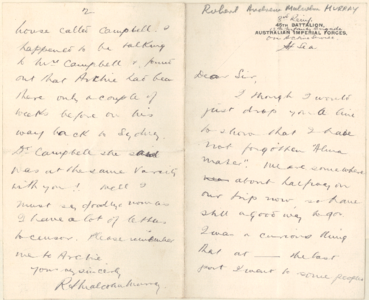 Robert Andrew Malcolm Murray
2nd Reinf.
45TH BATTALION,
AUSTRALIAN IMPERIAL FORCES.
At Sea
Dear Sir,
I though I would
just drop you a line
to show that I have
not forgotten "Alma
Mater". We are somewhere
about halfway on
our trip now, so have
still a good way to go.
It was a curious thing
that at — the last
port I went to some peoples
2
house called Campbell. I
happened to be talking
to Mrs Campbell & found
out that Archie had been
there only a couple of
weeks before on his
way back to Sydney.
Dr. Campbell she said
was at the same Varsity
with you! Well I
must say goodbye now as
I have a lot of letters
to censor. Please remember
me to Archie.
Yours sincerely
R. Malcolm Murray